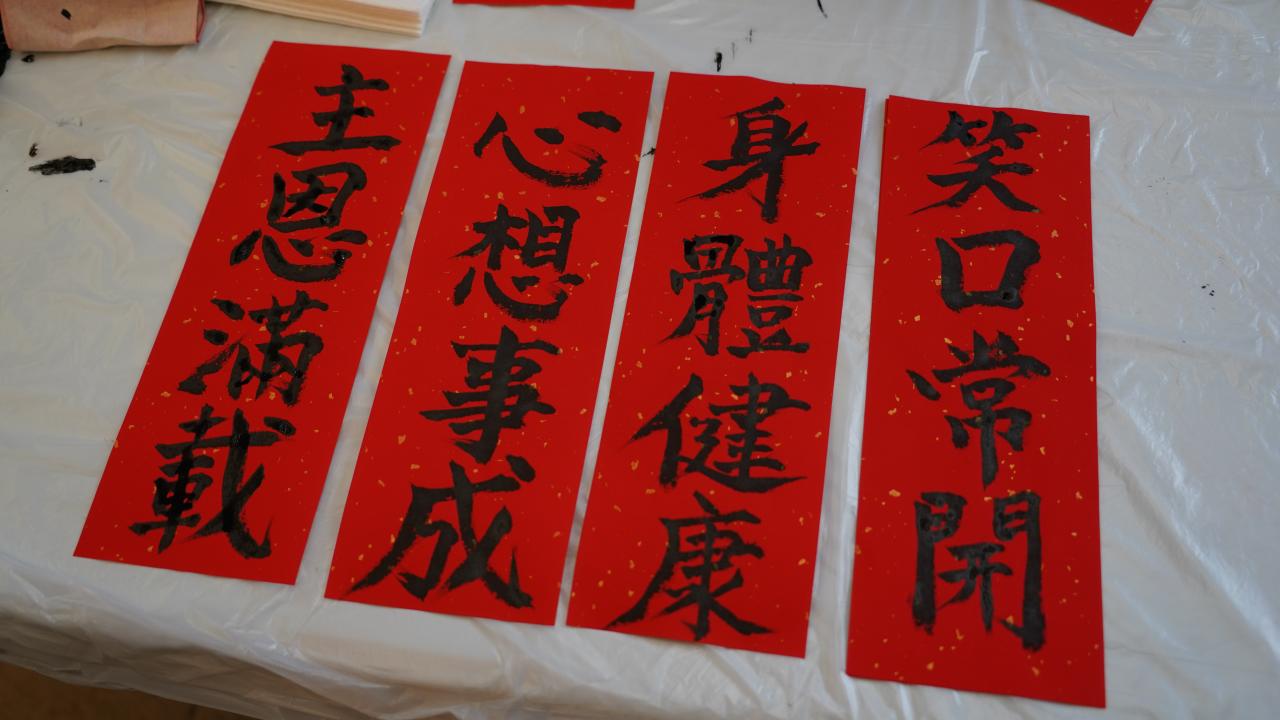 主恩滿載
心想事成
身體健康
笑口常開